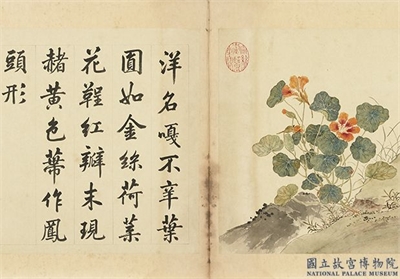 洋名嘎不辛葉
圓如金絲荷葉
花鞓紅瓣末現
赭黃色蒂作鳳
頭形
國立故宮博物院
NATIONAL PALACE MUSEUM